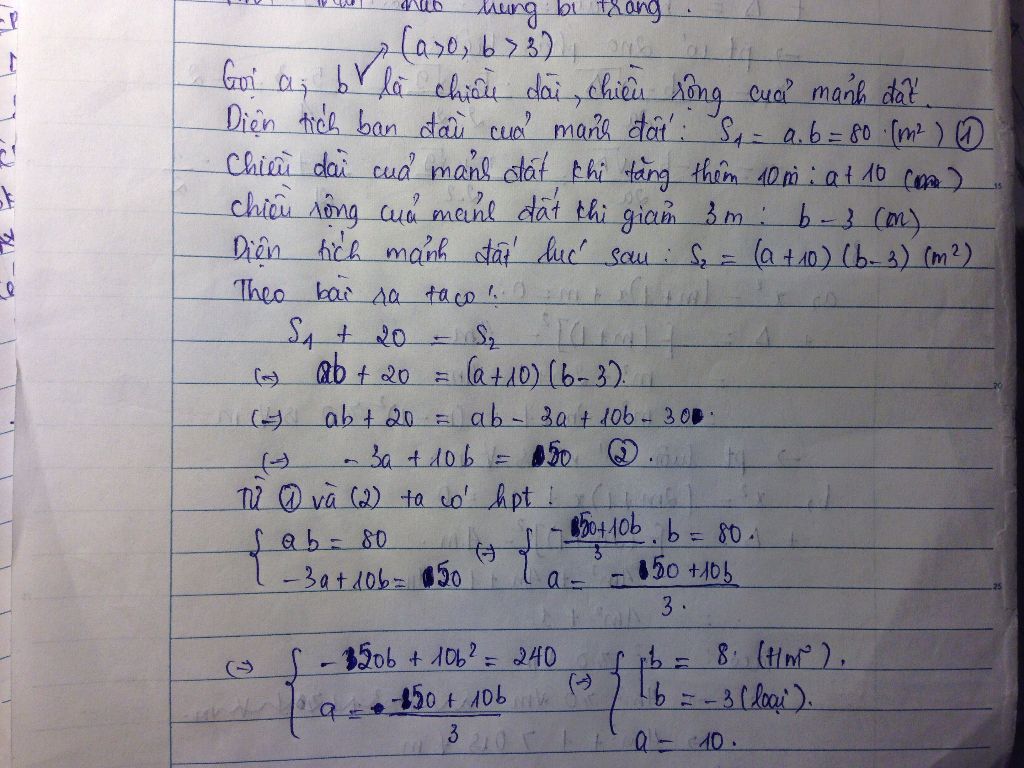 hung bị trang.
(a>0, b>3)
Gọi a, b là chiều dài, chiều rộng cuả mảnh đất.
Diện tích ban đầu cuả mảnh đất: S₁ = a.b = 80 (m²) ①
Chiều dài cuả mảnh đất khi tăng thêm 10m: a + 10 (m)
chiều rộng cuả mảnh đất khi giảm 3m: b - 3 (m)
Diện tích mảnh đất lúc sau: S₂ = (a+10)(b-3) (m²)
Theo bài ra ta có:
S₁ + 20 = S₂
(=) ab + 20 = (a+10)(b-3).
(=) ab + 20 = ab - 3a + 10b - 30.
(=) -3a + 10b = 50 ②.
Từ ① và (2) ta có hpt:
{ ab = 80 (=) { (-50+10b)/3 . b = 80.
{ -3a + 10b = 50 { a = (-50+10b)/3.
(=) { -50b + 10b² = 240 (=) { [ b = 8 (t/m).
{ a = (-50+10b)/3 [ b = -3 (loại).
a = 10.